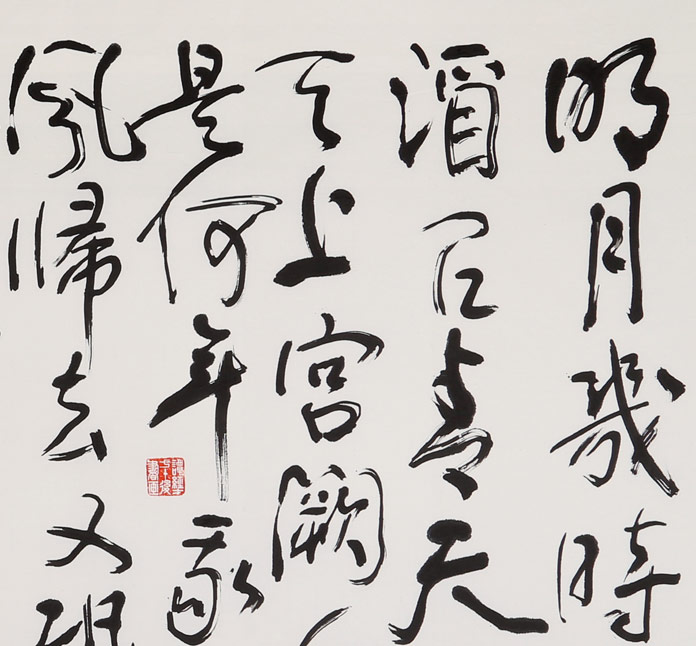 明月幾時
酒問青天
天上宮闕
是何年我
風帰去又恐